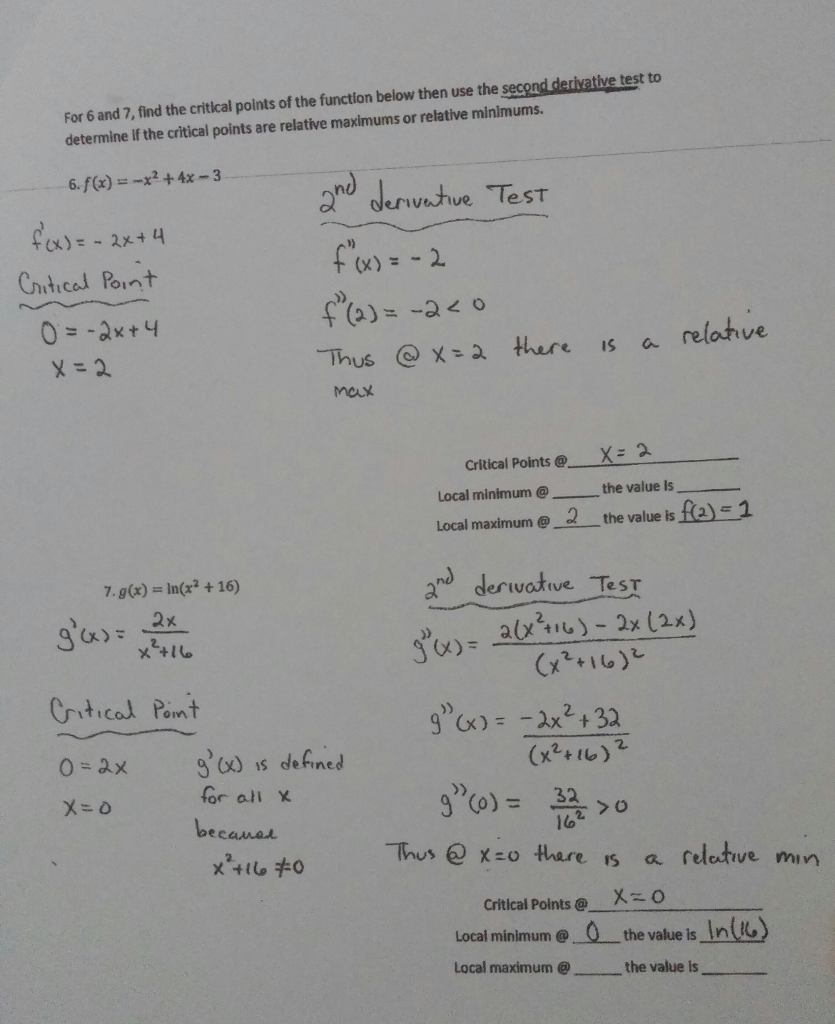 For 6 and 7, find the critical points of the function below then use the second derivative test to
determine if the critical points are relative maximums or relative minimums.
6. f(x) = −x² + 4x − 3
f'(x) = - 2x + 4
Critical Point
0 = -2x + 4
x = 2
2nd derivative Test
f''(x) = - 2
f''(2) = -2 < 0
Thus @ x = 2 there is a relative
max
Critical Points @ x = 2
Local minimum @ ____ the value is ____
Local maximum @ 2 the value is f(2) = 1
7. g(x) = ln(x² + 16)
g'(x) = 2x / x²+16
Critical Point
0 = 2x
x = 0
g'(x) is defined
for all x
because
x²+16 ≠ 0
2nd derivative Test
g''(x) = 2(x²+16) - 2x(2x) / (x²+16)²
g''(x) = -2x² + 32 / (x²+16)²
g''(0) = 32 / 16² > 0
Thus @ x=0 there is a relative min
Critical Points @ x = 0
Local minimum @ 0 the value is ln(16)
Local maximum @ ____ the value is ____